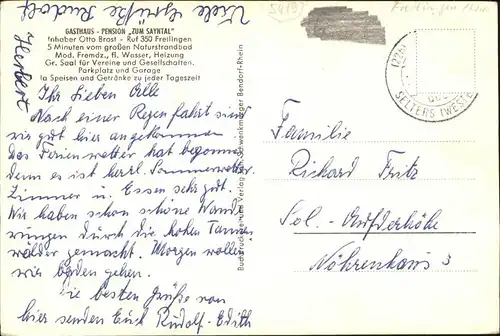 Viele Grüße Rudolf
Herbert
GASTHAUS - PENSION „ZUM SAYNTAL"
Inhaber Otto Brast - Ruf 350 Freilingen
5 Minuten vom großen Naturstrandbad
Mod. Fremdz., fl. Wasser, Heizung
Gr. Saal für Vereine und Gesellschaften.
Parkplatz und Garage
Ia Speisen und Getränke zu jeder Tageszeit
Ihr Lieben Alle
Nach einer Regenfahrt sind
wir gut hier angekommen
Das Ferienwetter hat begonnen
denn es ist herrl. Sommerwetter.
Zimmer u. Essen sehr gut.
Wir haben schon schöne Wande
rungen durch die hohen Tannen
wälder gemacht. Morgen wollen
wir baden gehen.
Die besten Grüße von
hier senden Euch Rudolf - Edith
Verlag Schwenkmezger Bendorf-Rhein
SELTERS (WESTE
Familie
Richard Fritz
Sol. - Aufderhöhe
Nöhrenhaus 3